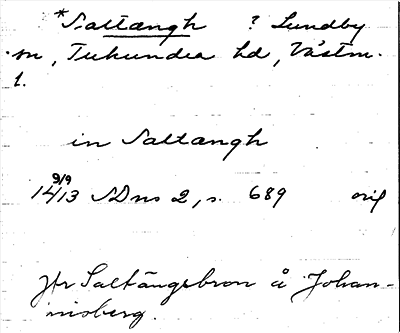 *Saltængh ? Lundby
sn, Tuhundra hd, Västm.
l.
in Saltængh
9/9
1413 SDns 2, s. 689 orig
jfr Saltängsbron å Johan-
nisberg.